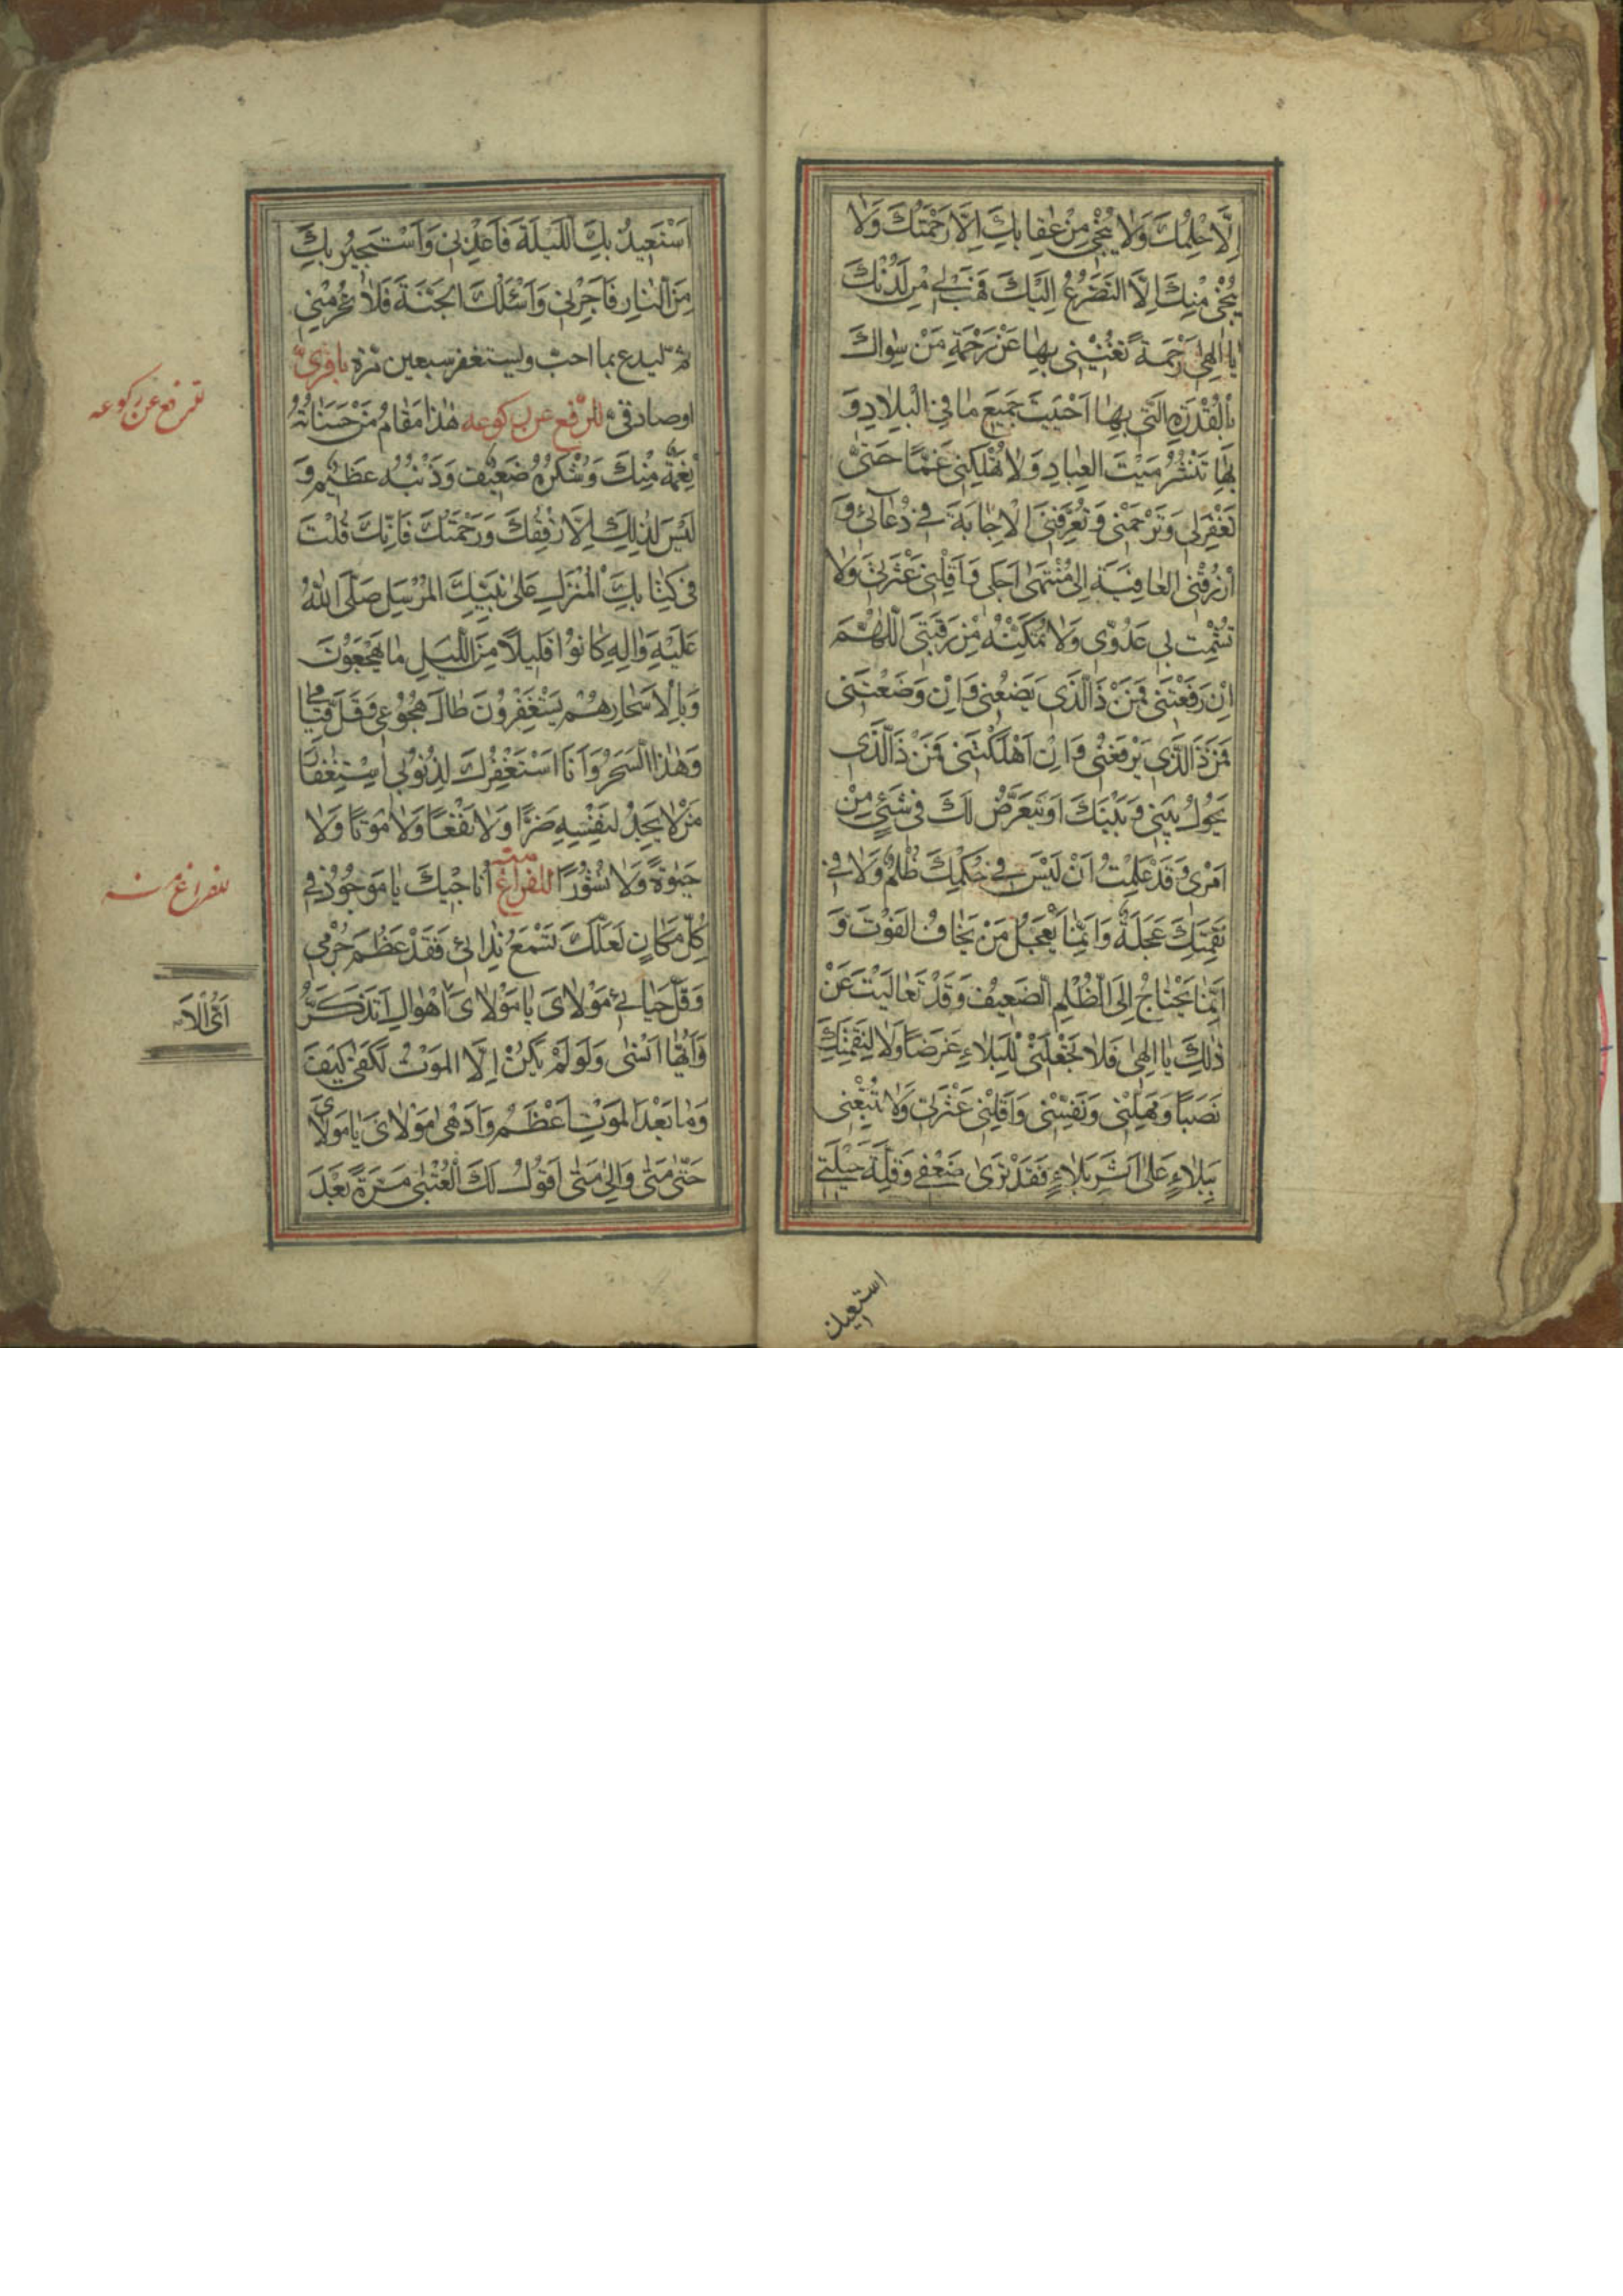 اِلَّا حِلْمُكَ وَلا يُنْجى مِنْ عِقابِكَ اِلَّا رَحْمَتُكَ وَلا
يُنْجى مِنْكَ اِلَّا التَّضَرُّعُ اِلَيْكَ فَهَبْ لى مِنْ لَدُنْكَ
يا اِلهى رَحْمَةً تُغْنينى بِها عَنْ رَحْمَةِ مَنْ سِواكَ
بِالْقُدْرَةِ الَّتى بِها اَحْيَيْتَ جَميعَ ما فِى الْبِلادِ وَ
بِها تَنْشُرُ مَيْتَ الْعِبادِ وَلا تُهْلِكْنى غَمًّا حَتّى
تَغْفِرَ لى وَتَرْحَمَنى وَتُعَرِّفَنِى الْاِجابَةَ فى دُعائى وَ
ارْزُقْنِى الْعافِيَةَ اِلى مُنْتَهى اَجَلى وَاَقِلْنى عَثْرَتى وَلا
تُشْمِتْ بى عَدُوّى وَلا تُمَكِّنْهُ مِنْ رَقَبَتى اَللّهُمَّ
اِنْ رَفَعْتَنى فَمَنْ ذَا الَّذى يَضَعُنى وَاِنْ وَضَعْتَنى
فَمَنْ ذَا الَّذى يَرْفَعُنى وَاِنْ اَهْلَكْتَنى فَمَنْ ذَا الَّذى
يَحُولُ بَيْنى وَبَيْنَكَ اَوْ يَتَعَرَّضُ لَكَ فى شَىْءٍ مِنْ
اَمْرى وَقَدْ عَلِمْتُ اَنْ لَيْسَ فى حُكْمِكَ ظُلْمٌ وَلا فى
نَقِمَتِكَ عَجَلَةٌ وَاِنَّما يَعْجَلُ مَنْ يَخافُ الْفَوْتَ وَ
اِنَّما يَحْتاجُ اِلَى الظُّلْمِ الضَّعيفُ وَقَدْ تَعالَيْتَ عَنْ
ذلِكَ يا اِلهى فَلا تَجْعَلْنى لِلْبَلاءِ غَرَضًا وَلا لِنَقِمَتِكَ
نَصَبًا وَمَهِّلْنى وَنَفِّسْنى وَاَقِلْنى عَثْرَتى وَلا تُتْبِعْنى
بِبَلاءٍ عَلى اَثَرِ بَلاءٍ فَقَدْ تَرى ضَعْفى وَقِلَّةَ حيلَتى
استعيذ
اَسْتَعيذُ بِكَ اللَّيْلَةَ فَاَعِذْنى وَاَسْتَجيرُ بِكَ
مِنَ النّارِ فَاَجِرْنى وَاَسْئَلُكَ الْجَنَّةَ فَلا تَحْرِمْنى
ثمّ ليدع بما احبّ وليستغفر سبعين مرّة باقرىّ
اوصادقىّ للرّفع عن ركوعه هذا مَقامُ مَنْ حَسَناتُهُ
نِعْمَةٌ مِنْكَ وَشُكْرُهُ ضَعيفٌ وَذَنْبُهُ عَظيمٌ وَ
لَيْسَ لِذلِكَ اِلَّا رِفْقُكَ وَرَحْمَتُكَ فَاِنَّكَ قُلْتَ
فى كِتابِكَ الْمُنْزَلِ عَلى نَبِيِّكَ الْمُرْسَلِ صَلَّى اللهُ
عَلَيْهِ وَالِهِ كانُوا قَليلًا مِنَ اللَّيْلِ ما يَهْجَعُونَ
وَبِالْاَسْحارِ هُمْ يَسْتَغْفِرُونَ طالَ هُجُوعى وَقَلَّ قِيامى
وَهذَا السَّحَرُ وَاَنَا اَسْتَغْفِرُكَ لِذُنُوبى اسْتِغْفارَ
مَنْ لا يَجِدُ لِنَفْسِهِ ضَرًّا وَلا نَفْعًا وَلا مَوْتًا وَلا
حَيوةً وَلا نُشُورًا للفراغ منه اُناجيكَ يا مَوْجُودُ فى
كُلِّ مَكانٍ لَعَلَّكَ تَسْمَعُ نِدائى فَقَدْ عَظُمَ جُرْمى
وَقَلَّ حَيائى مَوْلاىَ يا مَوْلاىَ اَىَّ الْاَهْوالِ اَتَذَكَّرُ
وَاَيَّها اَنْسى وَلَوْ لَمْ يَكُنْ اِلَّا الْمَوْتُ لَكَفى كَيْفَ
وَما بَعْدَ الْمَوْتِ اَعْظَمُ وَاَدْهى مَوْلاىَ يا مَوْلاىَ
حَتّى مَتى وَاِلى مَتى اَقُولُ لَكَ الْعُتْبى مَرَّةً بَعْدَ
للفراغ منه